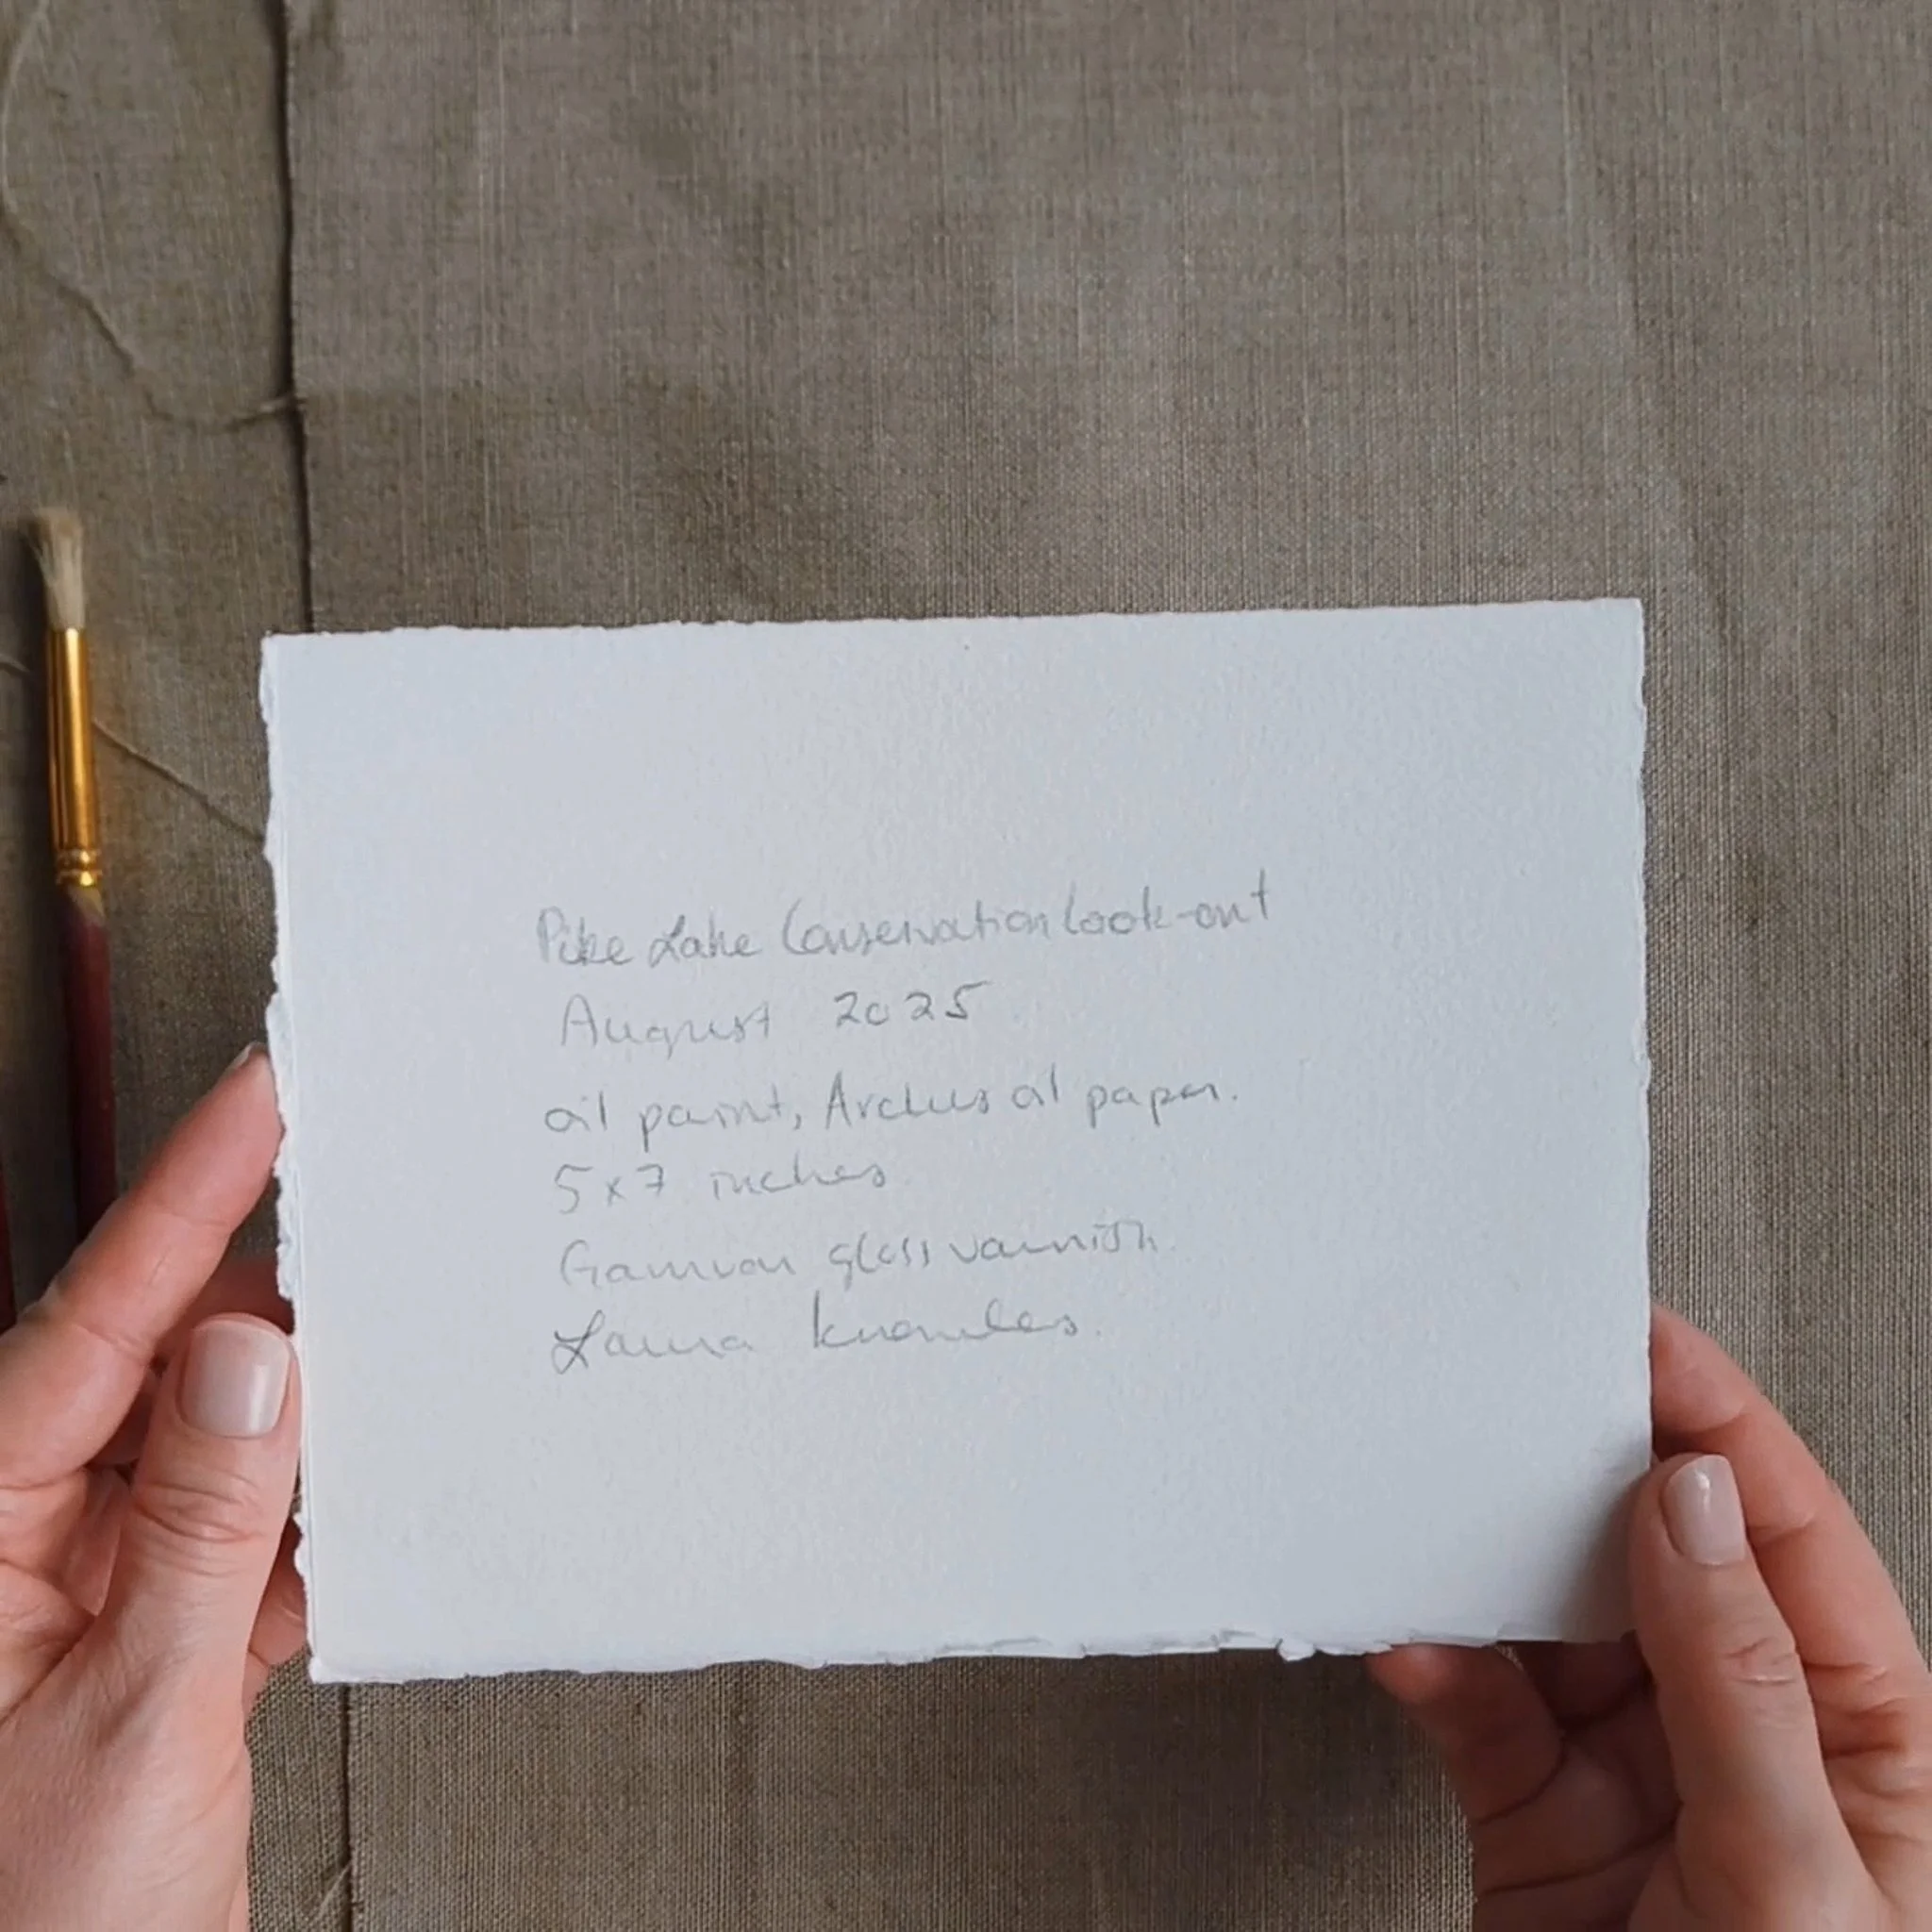 Pike Lake Conservation Look-out
August 2025
oil paint, Arches oil paper.
5x7 inches
Gamvar gloss varnish
Laura Knowles.